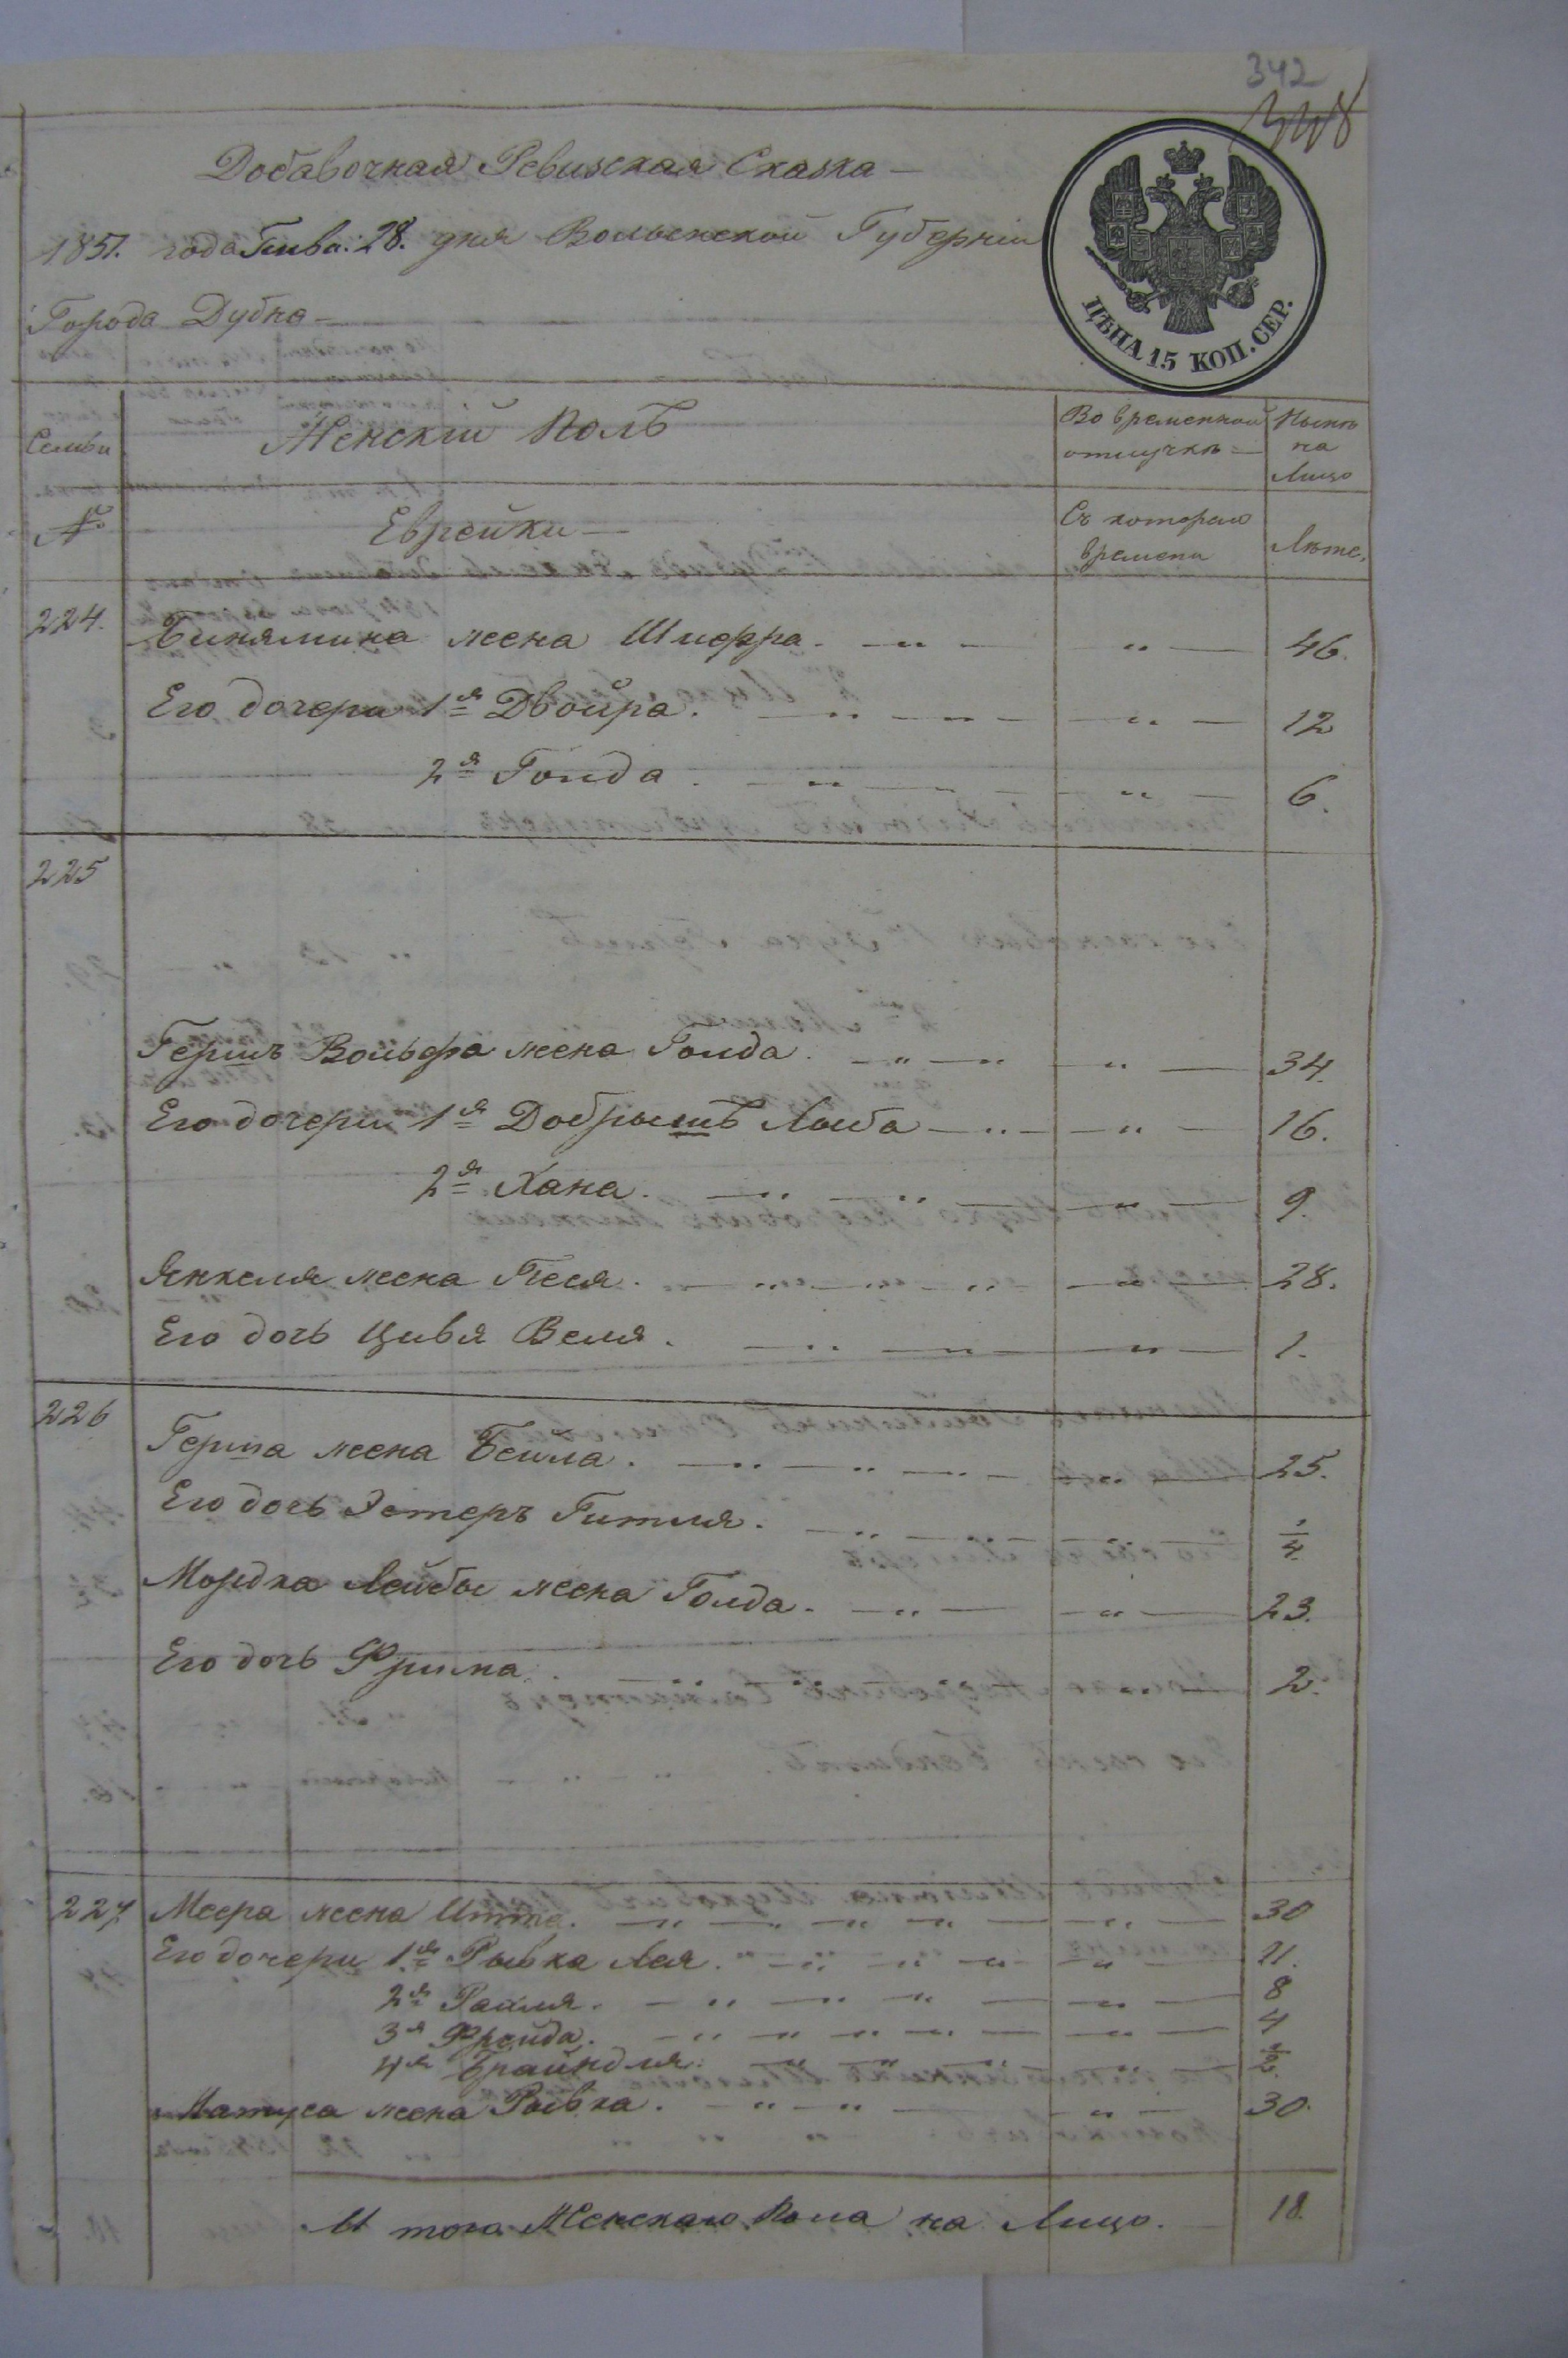 342
Добавочная Ревизская Сказка —
1851. года Генва: 28. дня Волынской Губерніи
Города Дубна —
ЦѢНА 15 КОП. СЕР.
Семьи
Женскій Полъ
Во временной отлучкѣ
Нынѣ на Лицо
№
Еврейки —
Съ котораго времени
Лѣта.
224. Бинямина жена Шифра. — „ — „ — 46.
Его дочери 1я Двойра. — „ — „ — 12
2я Голда. — „ — „ — 6.
225
Гершъ Вольфа жена Голда. — „ — „ — 34.
Его дочери 1я Добрышъ Лыба — „ — „ — 16.
2я Хана. — „ — „ — 9.
Янкеля жена Песя. — „ — „ — 28.
Его дочь Цивья Веля. — „ — „ — 1.
226
Герша жена Бейла. — „ — „ — 25.
Его дочь Эстеръ Гитля. — „ — „ — 1/4.
Мордка Лейбы жена Голда. — „ — „ — 23.
Его дочь Фрима. — „ — 2.
227 Меера жена Итта. — „ — „ — 30
Его дочери 1я Рывка Лея. — „ — „ — 11.
2я Рахля. — „ — „ — 8
3я Фрейда. — „ — „ — 4
4я Брайндля. — „ — „ — 1/2.
Матуса жена Рывка. — „ — „ — 30.
И того Женскаго Пола на Лицо. 18.